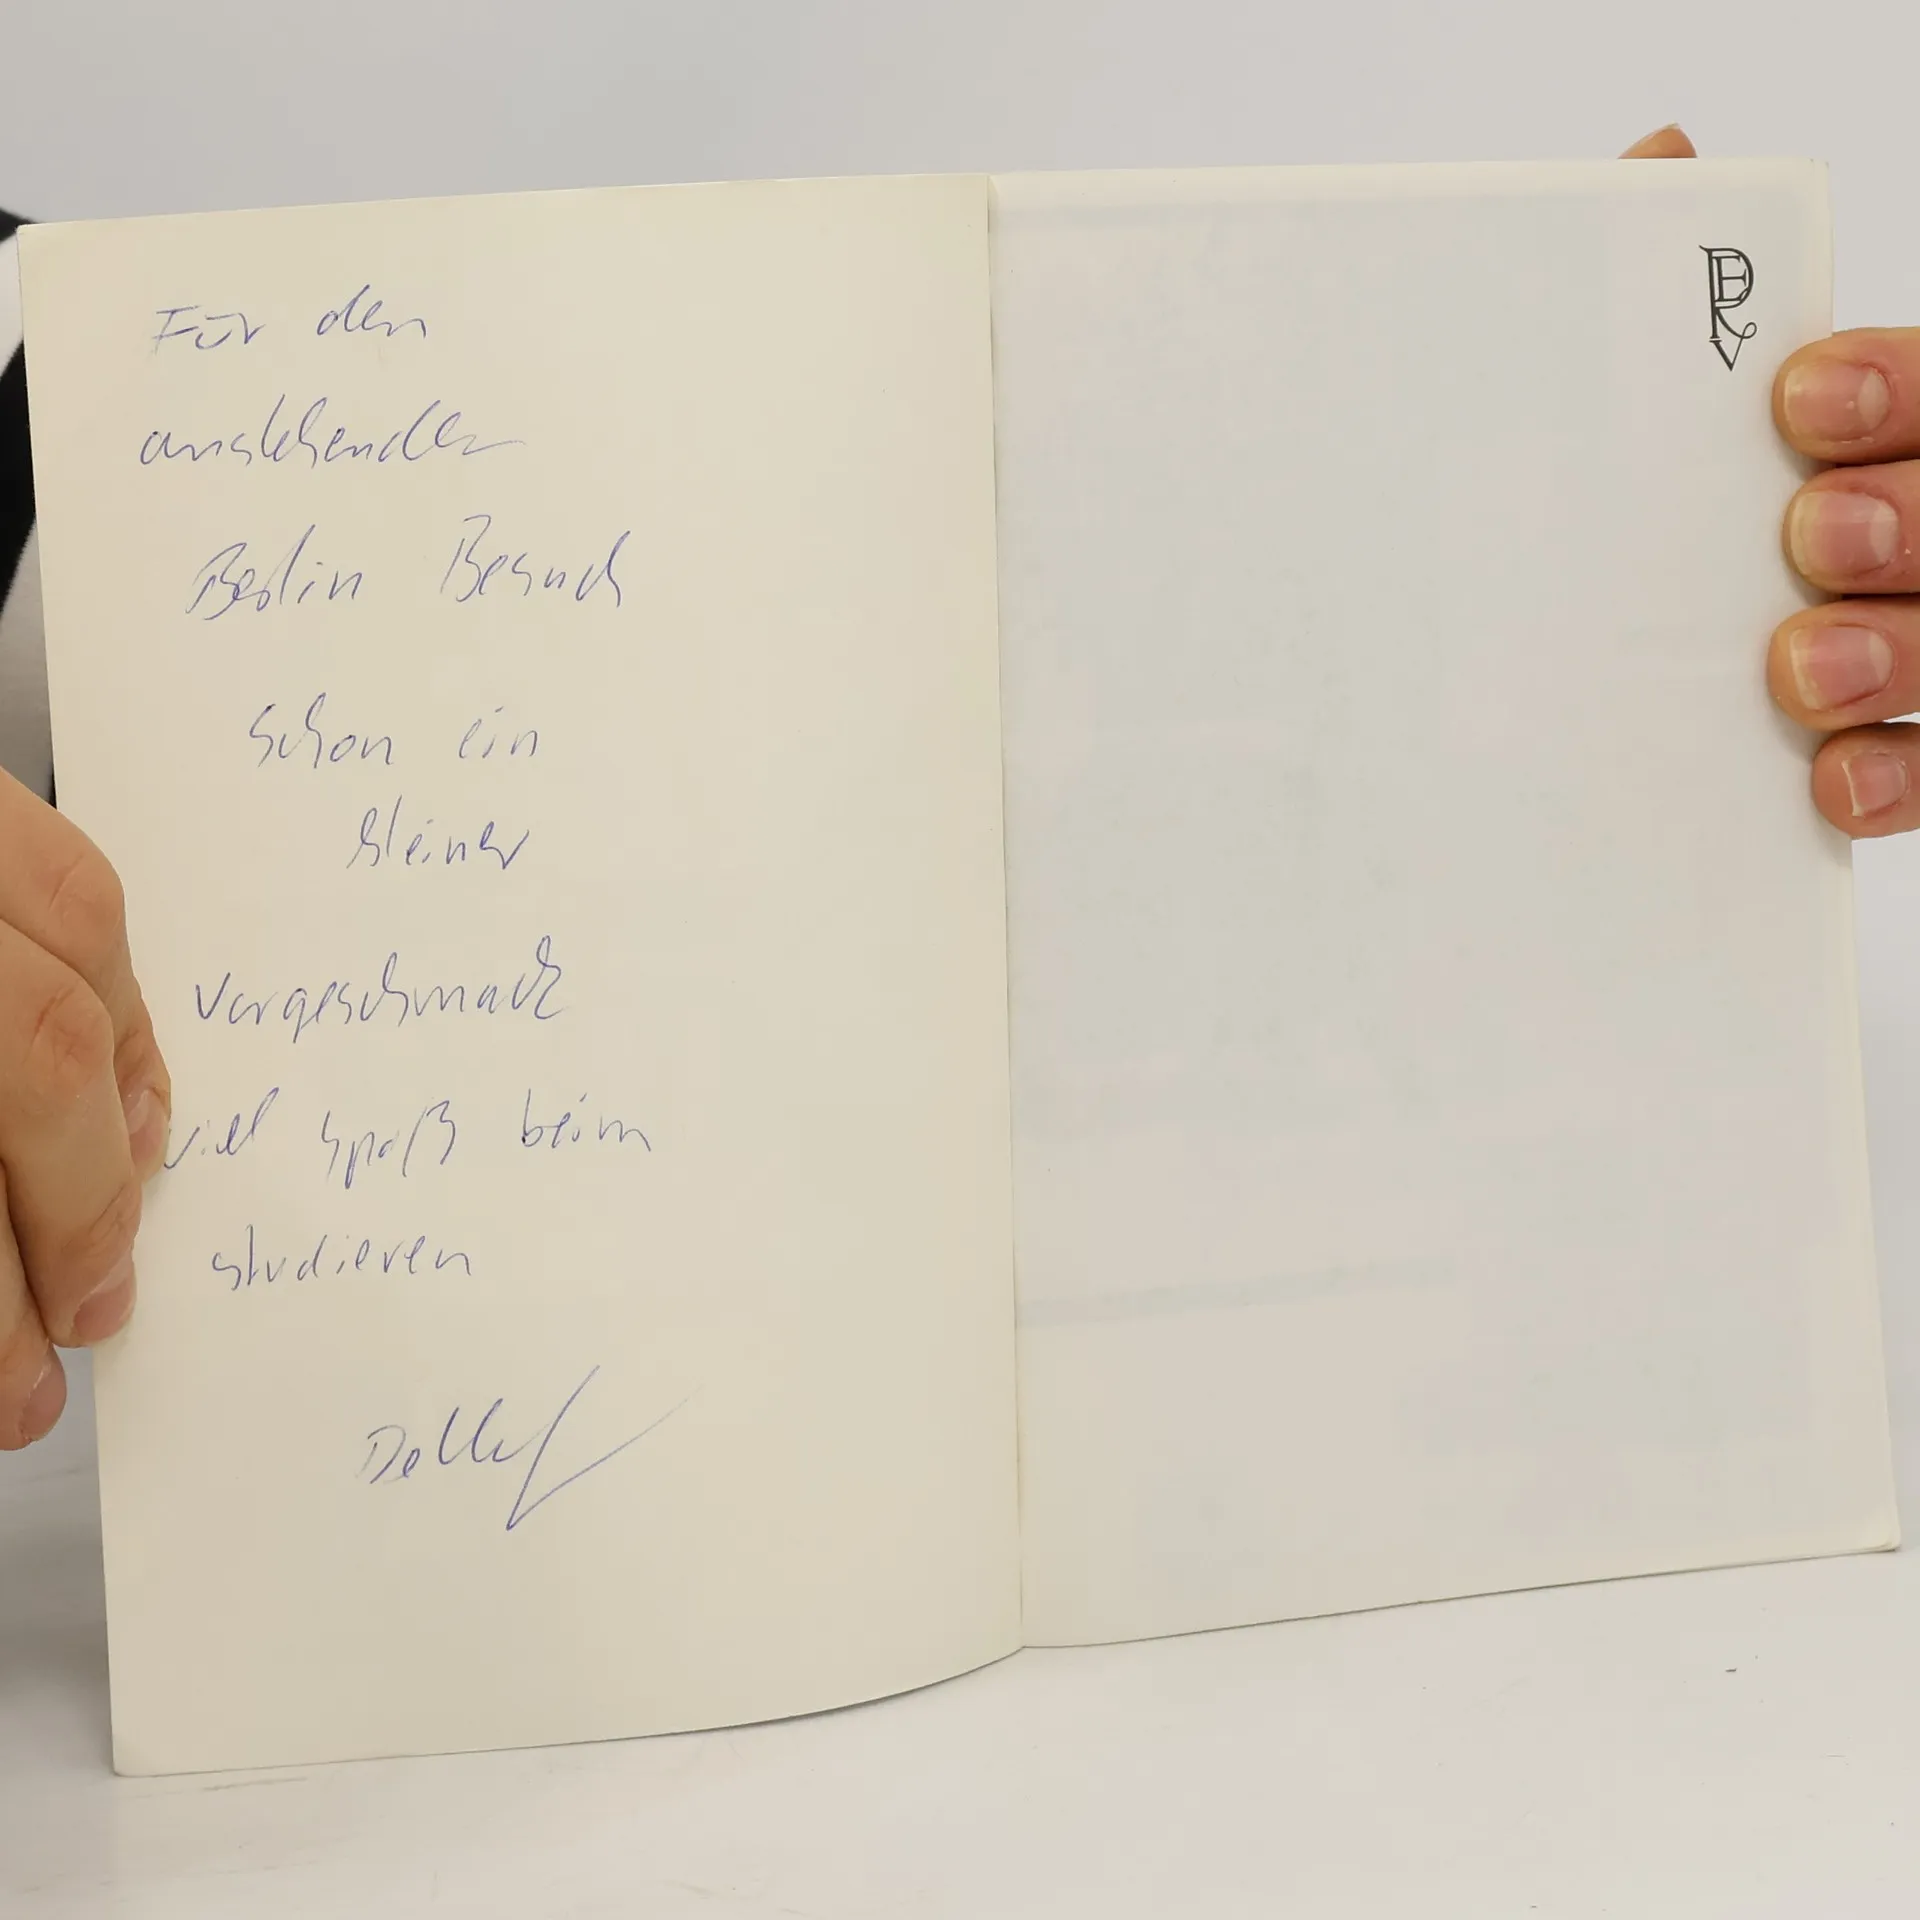 Für den
anstehenden
Berlin Besuch
schon ein
kleiner
Vorgeschmack
viel Spaß beim
studieren
Detlef